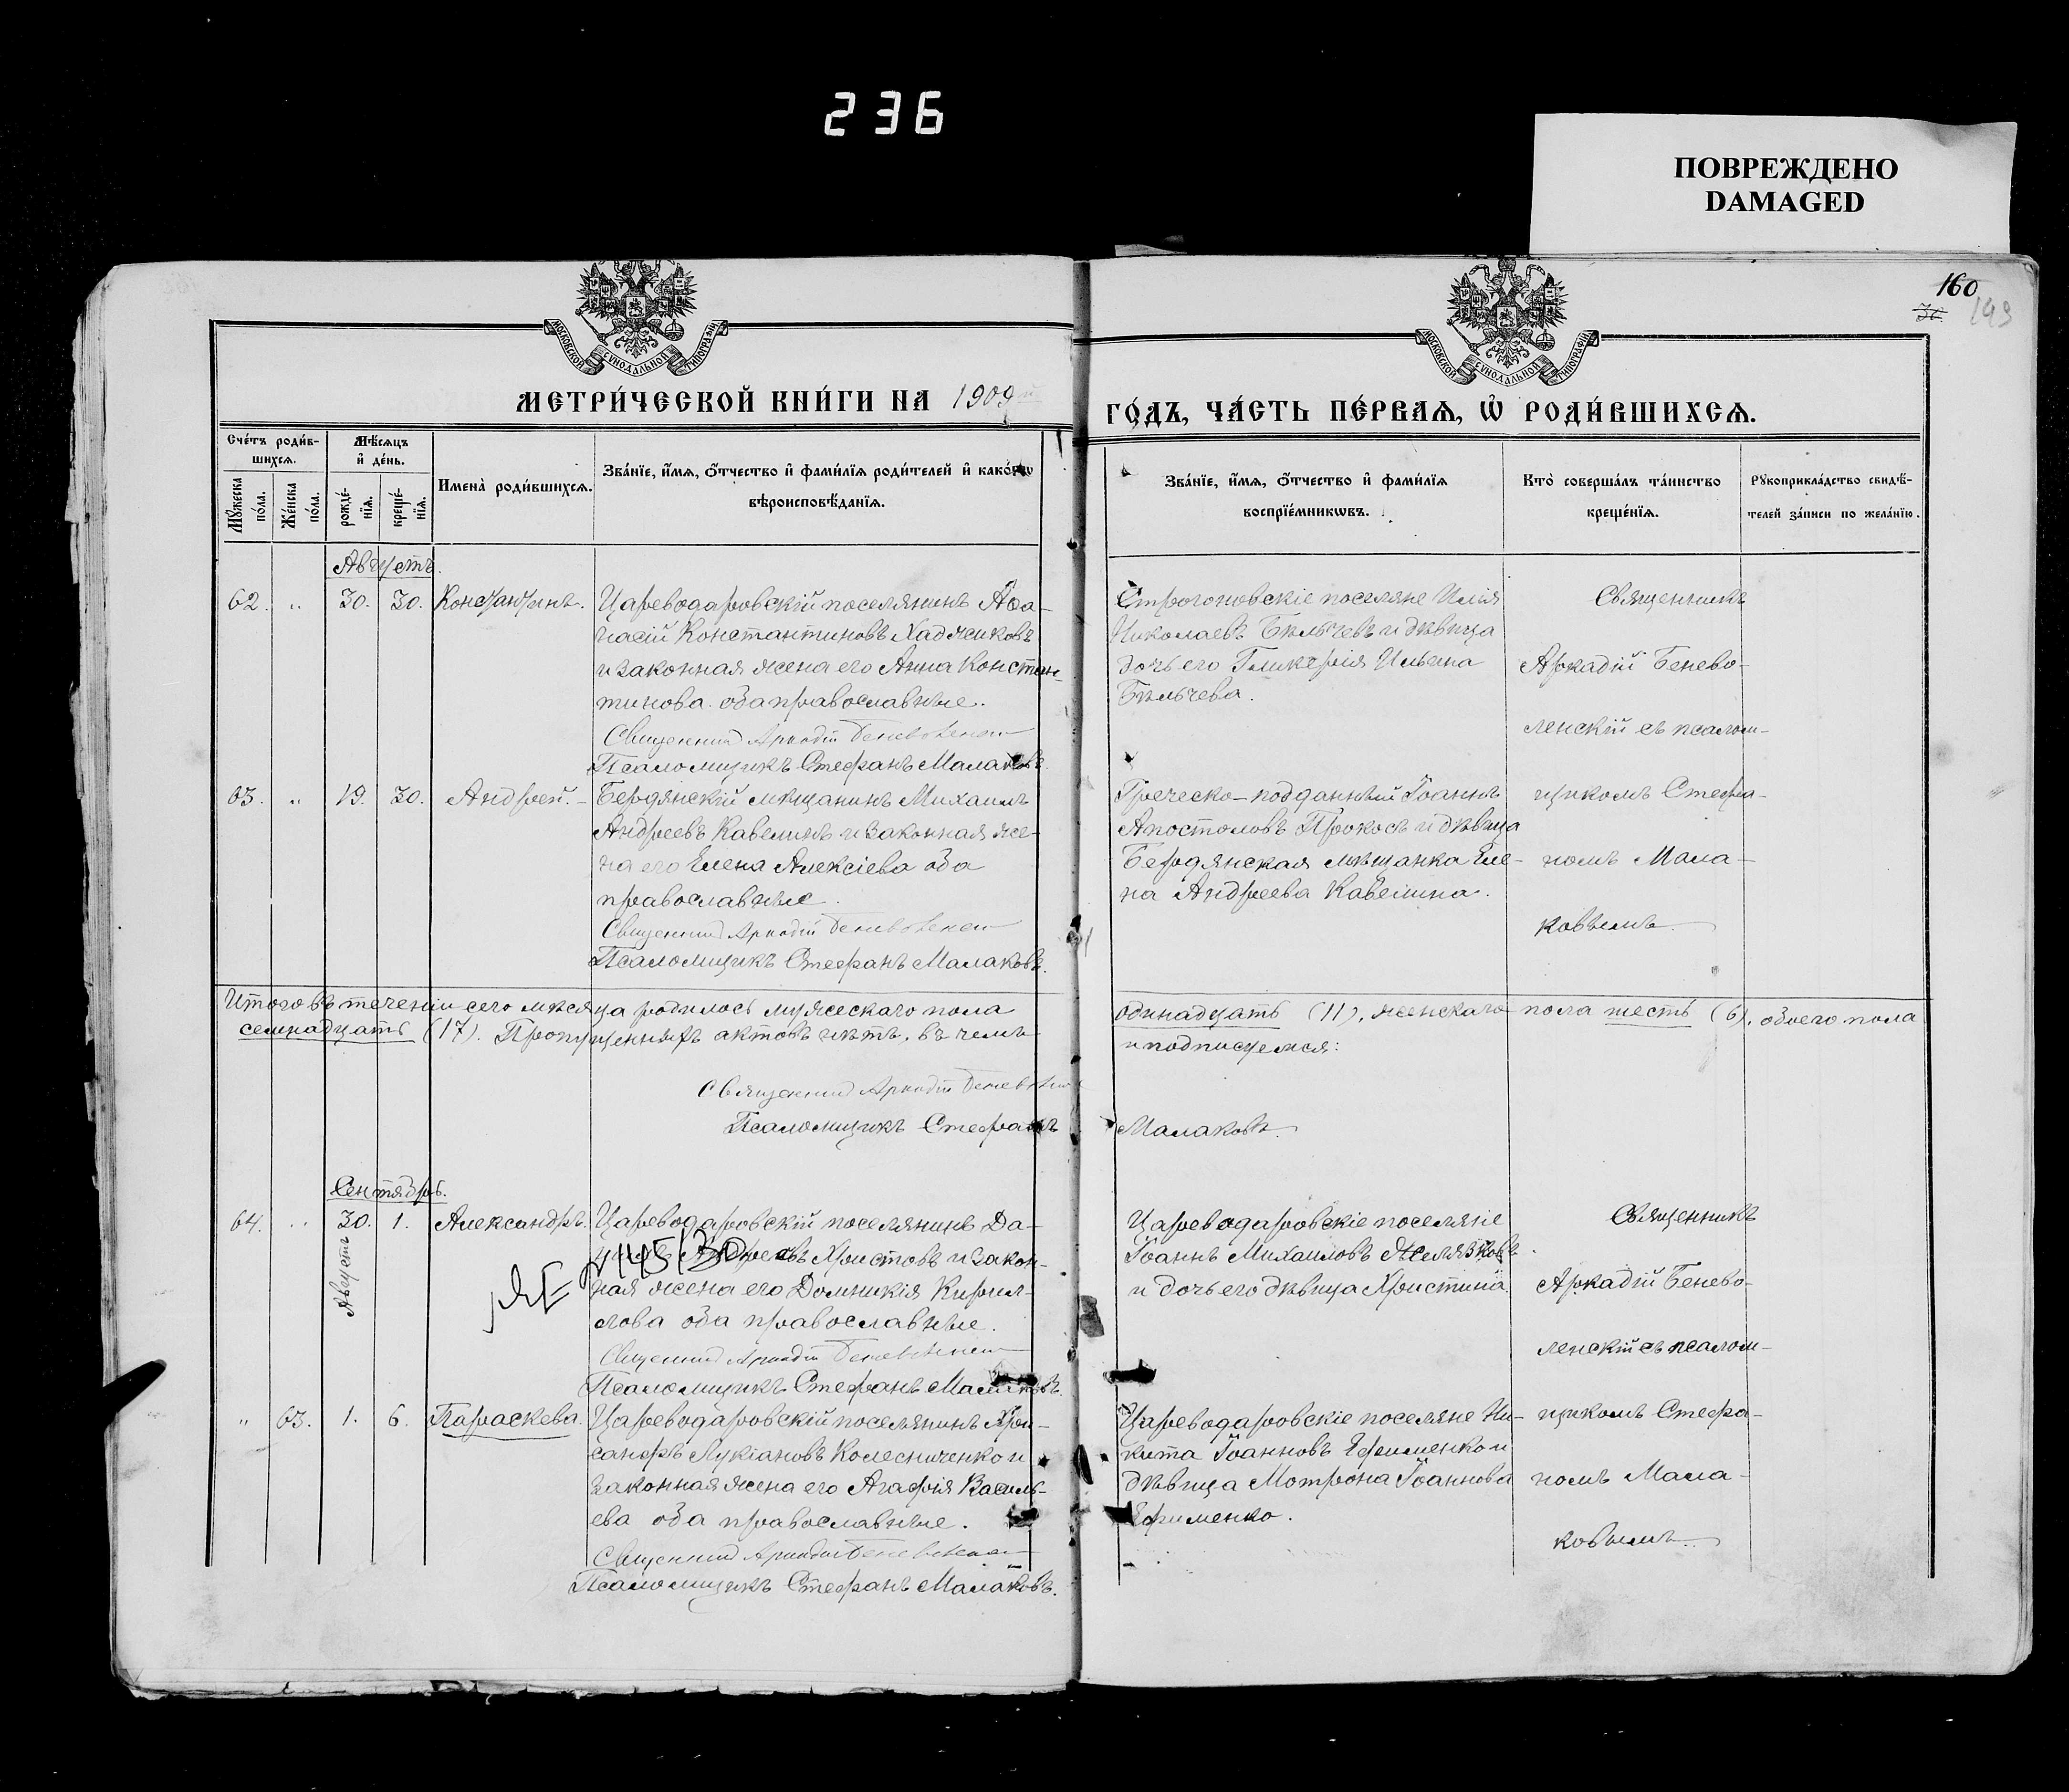 236
ПОВРЕЖДЕНО
DAMAGED
160
36
МОСКОВСКОЙ СУНОДАЛЬНОЙ ТИПОГРАФІИ
МОСКОВСКОЙ СУНОДАЛЬНОЙ ТИПОГРАФІИ
МЕТРИ́ЧЕСКОЙ КНИ́ГИ НА 1909й
ГО́ДЪ, ЧА́СТЬ ПЕ́РВАѦ, Ѡ҆ РОДИ́ВШИХСѦ.
Сче́тъ роди́в-
шихсѧ.
Мѣ́сѧцъ
и҆ де́нь.
Мꙋ́жеска по́ла.
Же́нска по́ла.
рожде́-нїѧ.
креще́-нїѧ.
Имена̀ роди́вшихсѧ.
Зва́нїе, и҆́мѧ, ѻ҆́тчество и҆ фами́лїѧ роди́телей и҆ како́гѡ
вѣроисповѣ́данїѧ.
Зва́нїе, и҆́мѧ, ѻ҆́тчество и҆ фами́лїѧ
воспрїе́мникѡвъ.
Кто̀ соверша́лъ та́инство
креще́нїѧ.
Рꙋкоприкла́дство свидѣ́-
телей за́писи по жела́нїю.
Августъ.
62. „ 30. 30. Константинъ.
Цареводаровскій поселянинъ Аѳа-
насій Константиновъ Хаджиковъ
и законная жена его Анна Констан-
тинова. оба православные.
Священникъ Аркадій Беневоленскій
Псаломщикъ Стефанъ Малаковъ.
Строгоновскіе поселяне Илія
Николаевъ Бѣльчевъ и дѣвица
дочь его Гликерія Ильина
Бѣльчева.
Священникъ
Аркадій Бенево-
ленскій съ псалом-
63. „ 19. 30. Андрей.
Бердянскій мѣщанинъ Михаилъ
Андреевъ Кавелинъ и законная же-
на его Елена Алексіева оба
православные.
Священникъ Аркадій Беневоленскій
Псаломщикъ Стефанъ Малаковъ.
Греческо-подданный Іоаннъ
Апостоловъ Прокосъ и дѣвица
Бердянская мѣщанка Еле-
на Андреева Кавелина.
щикомъ Стефа-
номъ Мала-
ковымъ.
Итого въ теченіи сего мѣсяца родилось мужескаго пола одинадцать (11), женскаго пола шесть (6), обоего пола
семнадцать (17). Пропущенныхъ актовъ нѣтъ, въ чемъ и подписуемся:
Священникъ Аркадій Беневоленскій
Псаломщикъ Стефанъ Малаковъ.
Сентябрь.
64. „ 30. 1. Александръ.
Августъ
Цареводаровскій поселянинъ Да-
Христовъ и закон-
ная жена его Домникія Кирил-
лова оба православные.
Священникъ Аркадій Беневоленскій
Псаломщикъ Стефанъ Малаковъ.
Цареводаровскіе поселяне
Іоаннъ Михаиловъ Желязковъ
и дочь его дѣвица Христина
Священникъ
Аркадій Бенево-
ленскій съ псалом-
„ 63. 1. 6. Параскева.
Цареводаровскій поселянинъ Хри-
санфъ Лукіановъ Колесниченко и
законная жена его Агафія Василь-
ева оба православные.
Священникъ Аркадій Беневоленскій
Псаломщикъ Стефанъ Малаковъ.
Цареводаровскіе поселяне Ни-
кита Іоанновъ Ефименко и
дѣвица Мотрона Іоаннова
Ефименко.
щикомъ Стефа-
номъ Мала-
ковымъ.